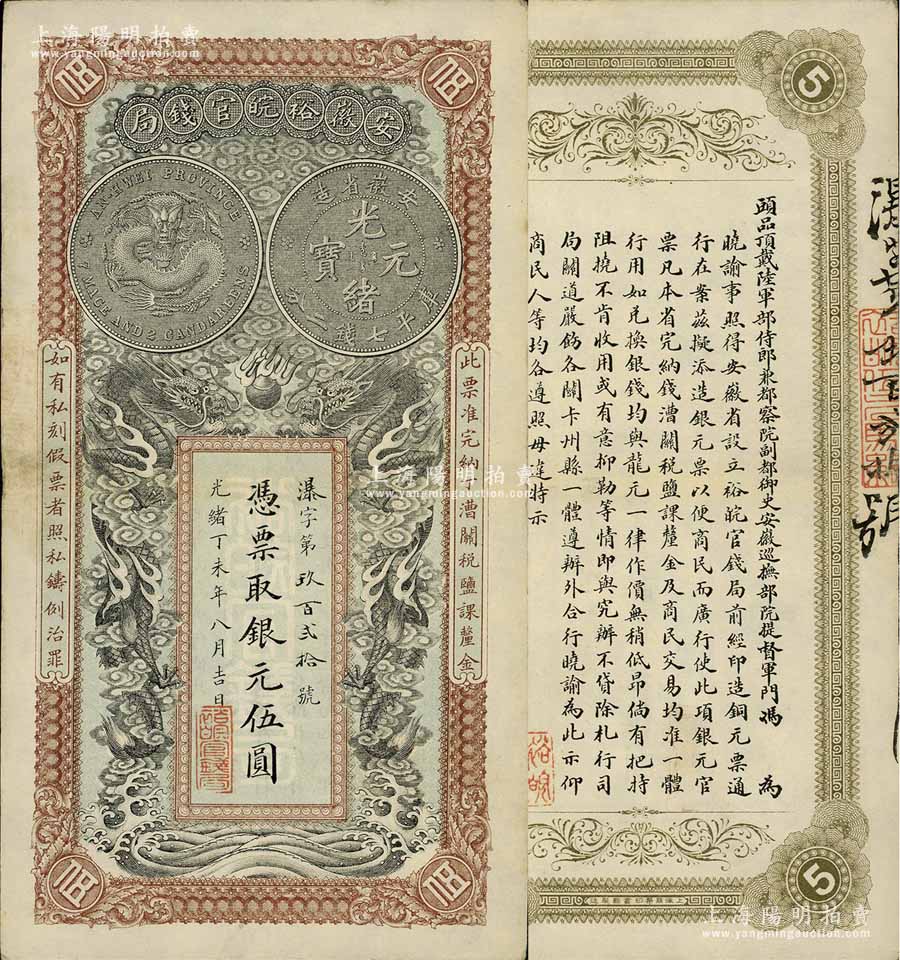 上海陽明拍賣
www.yangmingauction.com
安徽裕皖官錢局
AN-HWEI PROVINCE
7 MACE AND 2 CANDAREENS
安徽省造
光緒元寶
庫平七錢
此票准完納錢漕關稅鹽課釐金
如有私刻假票者照私鑄例治罪
瀑字第玖百貳拾號
憑票取銀元伍圓
光緒丁未年八月吉日
伍
伍
伍
伍
5
5
頭品頂戴陸軍部侍郎兼都察院副都御史安徽巡撫部院提督軍門馮 為
曉諭事照得安徽省設立裕皖官錢局前經印造銅元票通
行在案茲擬添造銀元票以便商民而廣行使此項銀元官
票凡本省完納錢漕關稅鹽課釐金及商民交易均准一體
行用如兌換銀錢均與龍元一律作價無稍低昂倘有把持
阻撓不肯收用或有意抑勒等情即與究辦不貸除札行司
局關道嚴飭各關卡州縣一體遵辦外合行曉諭為此示仰
商民人等均各遵照毋違特示
裕皖
上海陽明拍賣
www.yangmingauction.com
上海陽明拍賣
www.yangmingauction.com